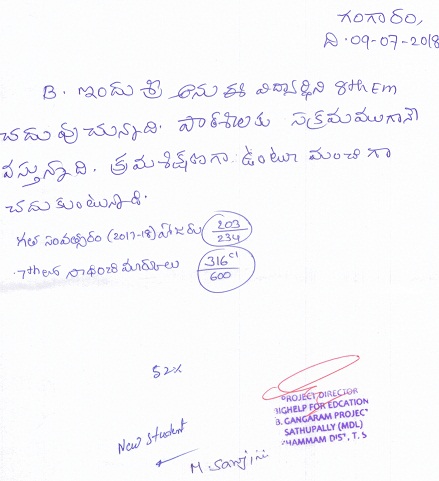 గంగారం,
ది. 09-07-2018
B. ఇందు శ్రీ అను ఈ విద్యార్థిని 8th Em
చదువుచున్నాది. పాఠశాలకు సక్రమముగానే
వస్తున్నాది. క్రమశిక్షణగా ఉంటూ మంచిగా
చదుకుంటున్నాది.
గత సంవత్సరం (2017-18) హాజరు 203/234
7th లో సాధించి మార్కులు 316/600
52%
New Student
M. Sanjini
PROJECT DIRECTOR
HIGHELP FOR EDCATION
B. GANGARAM PROJECT
SATHUPALLY (MDL)
KHAMMAM DIST, T. S